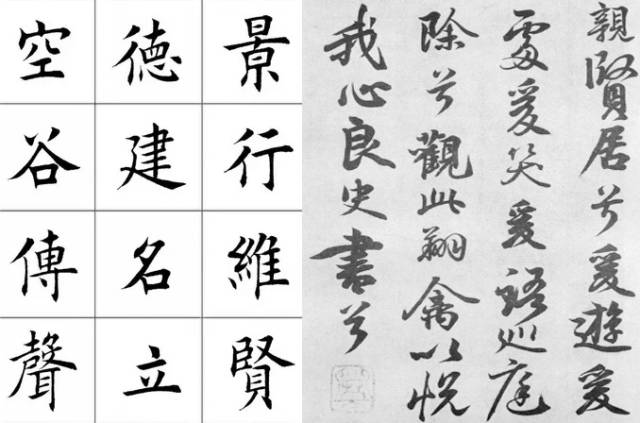 景行維賢
德建名立
空谷傳聲
親賢居兮爰遊爰
處爰笑爰語巡庭
除兮觀此翔禽以悅
我心良史書兮